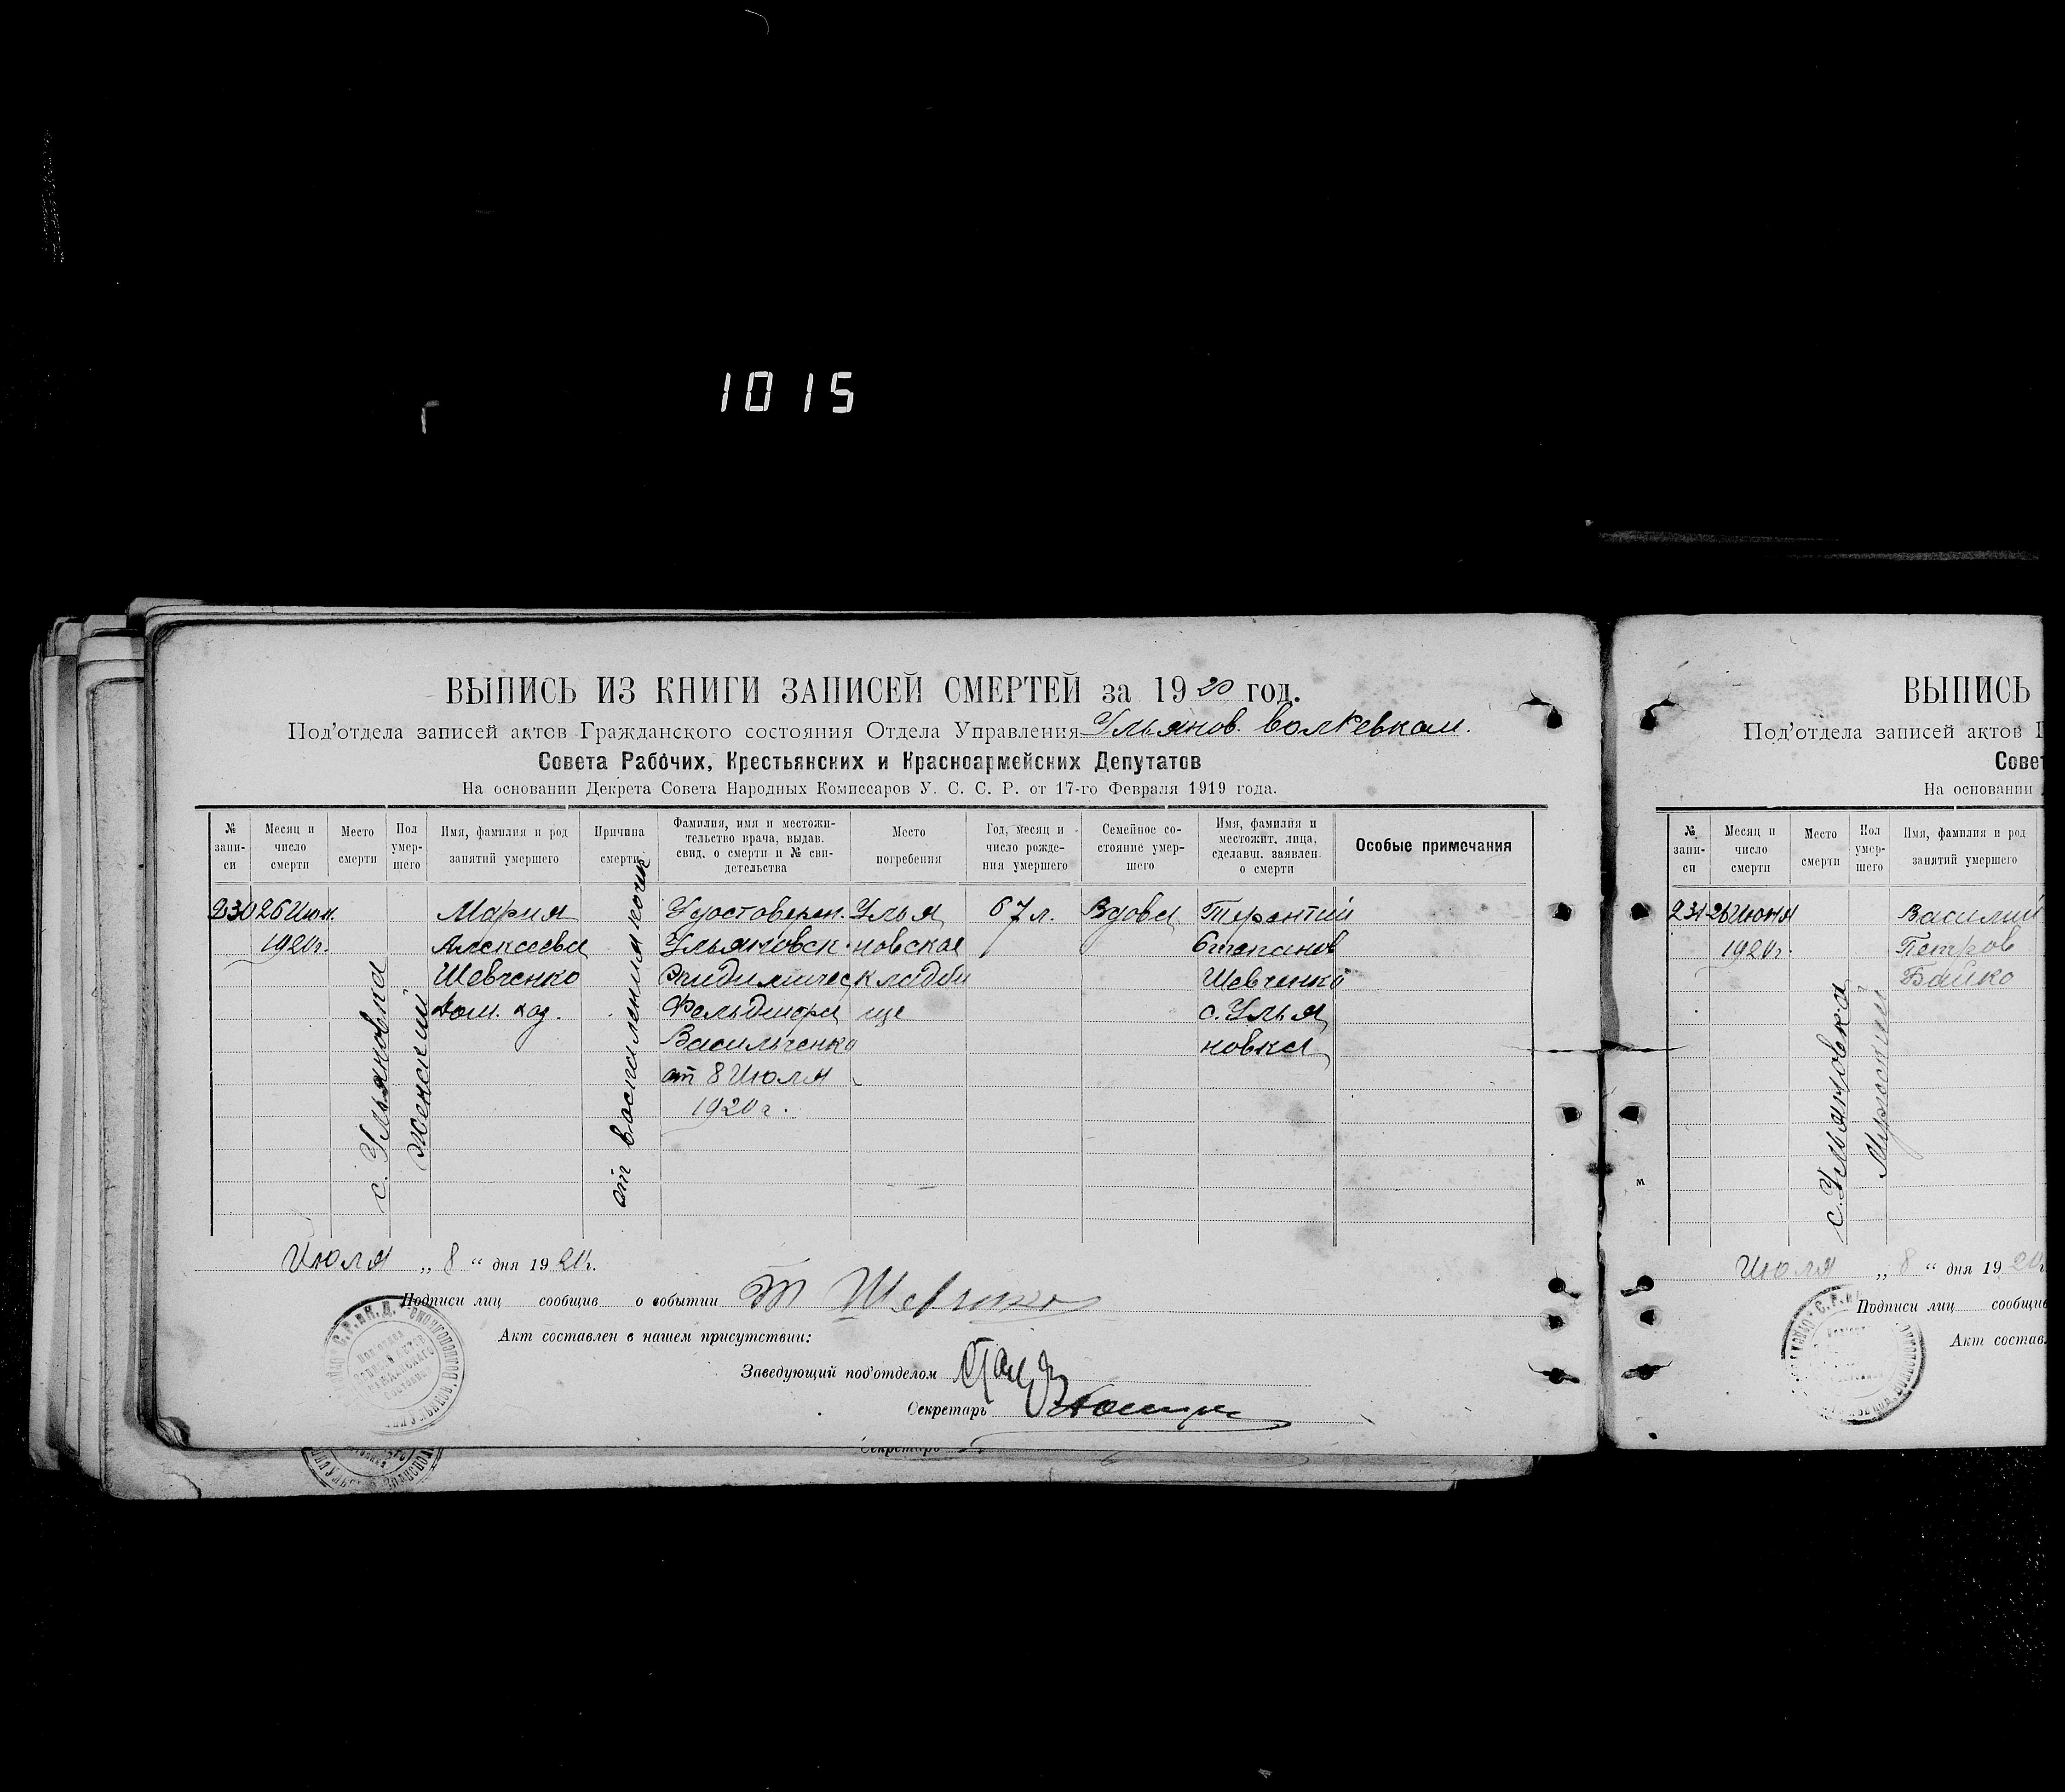 1015
ВЫПИСЬ ИЗ КНИГИ ЗАПИСЕЙ СМЕРТЕЙ за 1920 год.
Под'отдела записей актов Гражданского состояния Отдела Управления Ульянов. волревком.
Совета Рабочих, Крестьянских и Красноармейских Депутатов
На основании Декрета Совета Народных Комиссаров У. С. С. Р. от 17-го Февраля 1919 года.
№ запи-си
Месяц и число смерти
Место смерти
Пол умер-шего
Имя, фамилия и род занятий умершего
Причина смерти
Фамилия, имя и местожи-тельство врача, выдав. свид. о смерти и № сви-детельства
Место погребения
Год, месяц и число рожде-ния умершего
Семейное со-стояние умер-шего
Имя, фамилия и местожит. лица, сделавш. заявлен. о смерти
Особые примечания
230
26 Июн.
1920г.
с. Ульяновка
Женский
Мария
Алексеева
Шевченко
дом. хоз.
от воспаления почек
Удостоверен.
Ульяновск.
Эпидимичес
Фельдшера
Васильченко
от 8 Июля
1920г.
Улья
новское
кладби
ще
67 л.
Вдова
Терентий
Степанов
Шевченко
с. Улья
новка
Июля „ 8 “ дня 1920г.
Подписи лиц сообщив о событии Т Шевченко
Акт составлен в нашем присутствии:
Заведующий под'отделом
Секретарь
Секретарь
ВЫПИСЬ
Под'отдела записей актов Г
Совет
На основании
№ запи-си
Месяц и число смерти
Место смерти
Пол умер-шего
Имя, фамилия и род занятий умершего
231
26 Июня
1920г.
с. Ульяновка
Мужский
Василий
Петров
Бойко
Июля „ 8 “ дня 1920г
Подписи лиц сообщив
Акт состав.